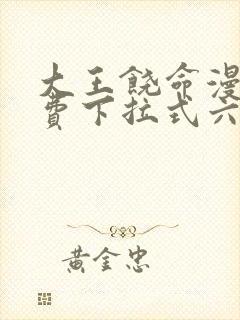 大王饶命漫
费下拉式六
黄金忠